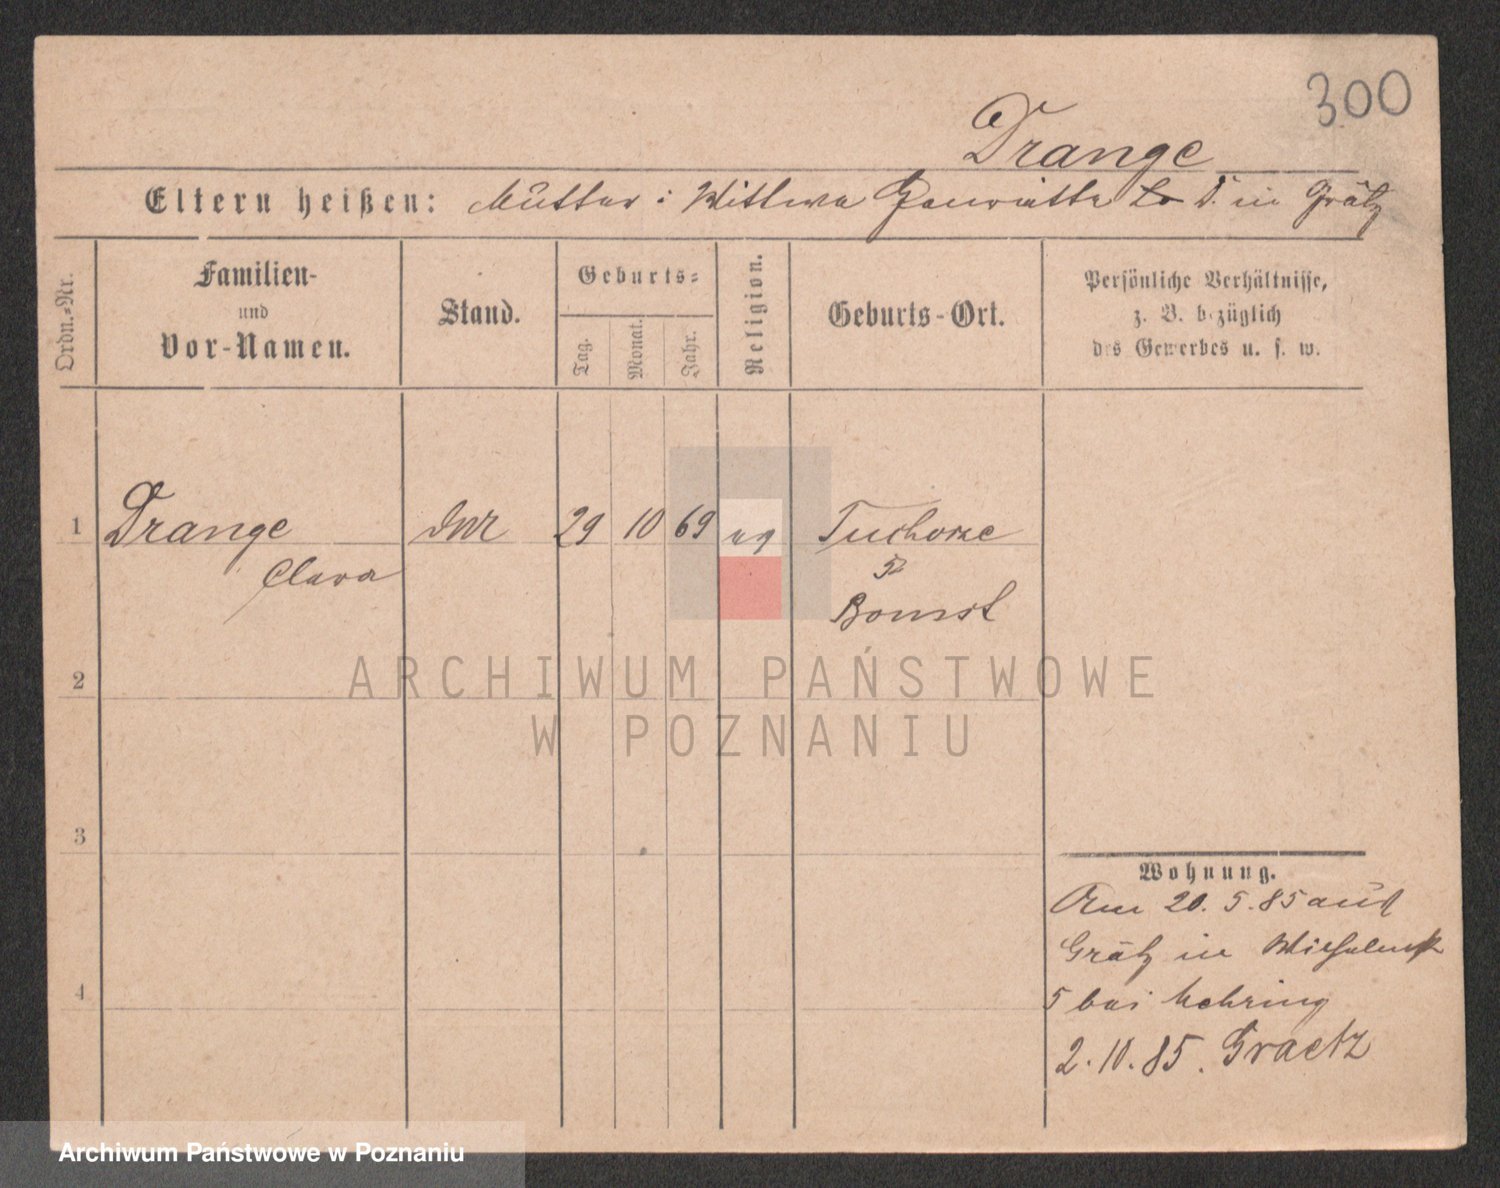 300
Drange
Eltern heißen: Mutter: Wittwe Henriette D. in Grätz
Ordn.-Nr.
Familien-
und
Vor-Namen.
Stand.
Geburts-
Tag.
Monat.
Jahr.
Religion.
Geburts-Ort.
Persönliche Verhältnisse,
z. B. bezüglich
des Gewerbes u. s. w.
1 Drange 29 10 69 Tuchorze
Clara
Bomst
ARCHIWUM PAŃSTWOWE
W POZNANIU
2
3
4
Wohnung.
Am 20. 5. 85 aus
Grätz in Wilhelmstr
5 bei Mehring
2. 10. 85. Graetz
Archiwum Państwowe w Poznaniu